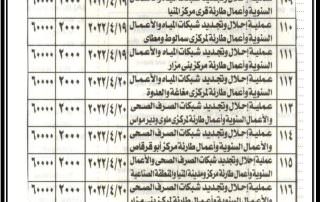 السنوية وأعمال طارئة قرى مركز المنيا
٦٠٠٠٠ ٢٠٠٠ ٢٠٢٢/٤/١٩ عملية إحلال وتجديد شبكات المياه والأعمال
السنوية وأعمال طارئة لمركزى سمالوط ومطاى ١١٠
٦٠٠٠٠ ٢٠٠٠ ٢٠٢٢/٤/١٩ عملية إحلال وتجديد شبكات المياه والأعمال ١١١
السنوية وأعمال طارئة مركز بنى مزار
٦٠٠٠٠ ٢٠٠٠ ٢٠٢٢/٤/٢٠ عملية إحلال وتجديد شبكات المياه والأعمال ١١٢
السنوية وأعمال طارئة لمركزى مغاغة والعدوة
٦٠٠٠٠ ٢٠٠٠ ٢٠٢٢/٤/٢٠ عملية إحلال وتجديد شبكات الصرف الصحى ١١٣
والأعمال السنوية وأعمال طارئة لمركزى ملوى وديرمواس
٦٠٠٠٠ ٢٠٠٠ ٢٠٢٢/٤/٢٠ عملية إحلال وتجديد شبكات الصرف الصحى ١١٤
والأعمال السنوية وأعمال طارئة مركز أبوقرقاص
٦٠٠٠٠ ٢٠٠٠ ٢٠٢٢/٤/٢٠ عملية إحلال وتجديد شبكات الصرف الصحى والأعمال ١١٥
السنوية وأعمال طارئة مركز ومدينة المنيا والمنطقة الصناعية
٦٠٠٠٠ ٢٠٠٠ ٢٠٢٢/٤/٢٠ عملية إحلال وتجديد شبكات الصرف الصحى ١١٦